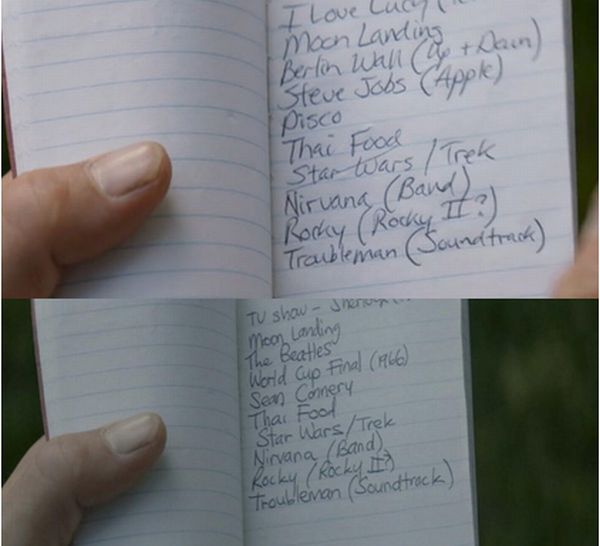 I Love Lucy (
Moon Landing
Berlin Wall (Up + Down)
Steve Jobs (Apple)
Disco
Thai Food
Star Wars / Trek
Nirvana (Band)
Rocky (Rocky II?)
Troubleman (Soundtrack)
TV show - Sherlock
Moon Landing
The Beatles
World Cup Final (1966)
Sean Connery
Thai Food
Star Wars / Trek
Nirvana (Band)
Rocky (Rocky II?)
Troubleman (Soundtrack)